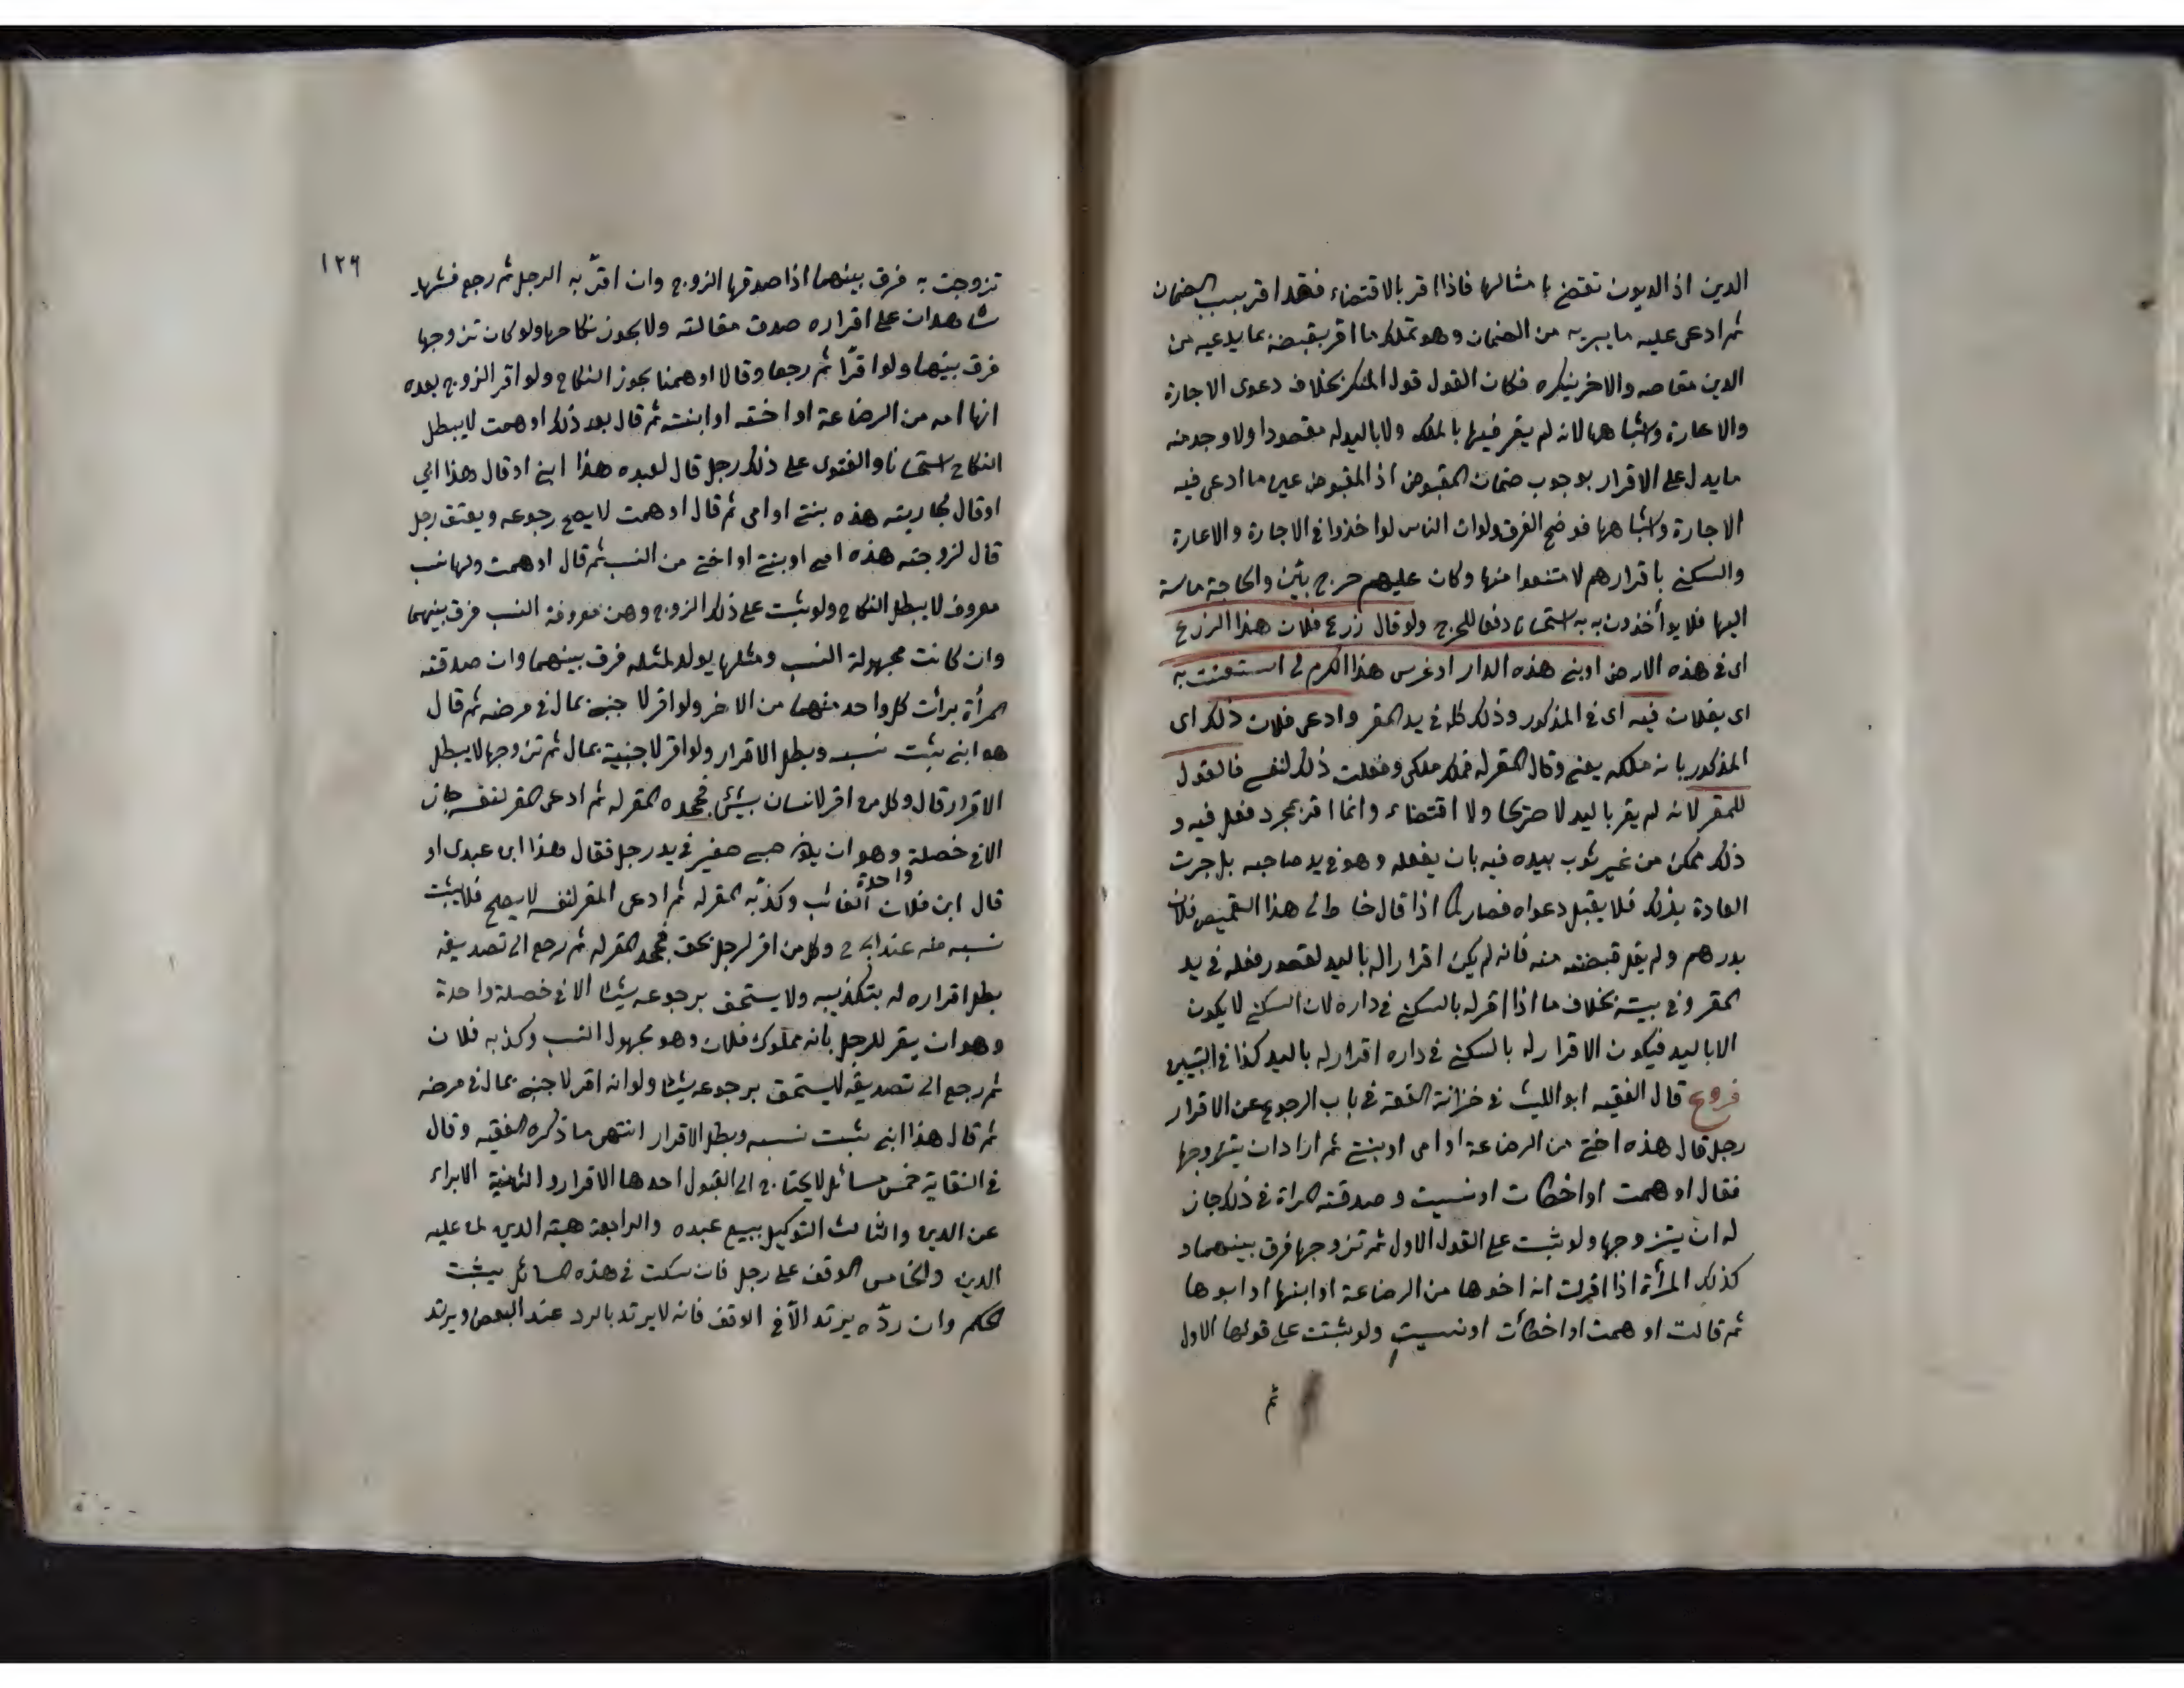 الدين اذ الديون تقتضى بامثالها فاذا اقر بالاقتضاء فقد اقر بسبب الضمان
ثم ادعى عليه ما يبريه من الضمان وهو تملك ما اقر بقبضه بما يدعيه من
الدين مقاصه والاخر ينكره فكان القول قول المنكر بخلاف دعوى الاجارة
والاعارة واشباهها لانه لم يقر فيها بالملك ولا باليد له مقصودا ولا وجد منه
ما يدل على الاقرار بوجوب ضمان المقبوض اذ المقبوض عين ما ادعى فيه
الاجارة واشباهها فوضح الفرق ولان الناس لو اخذوا في الاجارة والاعارة
والسكنى باقرارهم لامتنعوا منها وكان عليهم حرج بين والحاجة ماسة
اليها فلا يوأخذون به استحسانا دفعا للحرج ولو قال زرع فلان هذا الزرع
اى في هذه الارض او بنى هذه الدار او غرس هذا الكرم لى استعنت به
اى بفلان فيه اى في المذكور وذلك كله في يد المقر وادعى فلان ذلك اى
المذكور بانه ملكه يعنى وقال المقر له ملكى وفعلت ذلك لنفسى فالقول
للمقر لانه لم يقر باليد لا صريحا ولا اقتضاء وانما اقر بمجرد فعل فيه و
ذلك ممكن من غير ثبوت بيده فيه بان يفعله وهو في يد صاحبه بل جرت
العادة بذلك فلا يقبل دعواه فصار كما اذا قال خاط لى هذا القميص فلان
بدرهم ولم يقل قبضته منه فانه لم يكن اقرارا له باليد لقصور فعله في يد
المقر وفي بيته بخلاف ما اذا اقر له بالسكنى في داره لان السكنى لا يكون
الا باليد فيكون الاقرار له بالسكنى في داره اقرار له باليد كذا في التبيين
فروع قال الفقيه ابو الليث في خزانة الفقه في باب الرجوع عن الاقرار
رجل قال هذه اختى من الرضاعة او امى او بنتى ثم اراد ان يتزوجها
فقال اوهمت او اخطات او نسيت وصدقته المراة في ذلك جاز
له ان يتزوجها ولو ثبت على القول الاول ثم تزوجها فرق بينهما و
كذلك المرأة اذا اقرت انه اخوها من الرضاعة او ابنها او ابوها
ثم قالت اوهمت او اخطأت او نسيت ولو ثبتت على قولها الاول
ثم
١٢٦
تزوجت به فرق بينهما اذا صدقها الزوج وان اقر به الرجل ثم رجع فشهد
شاهدان على اقراره صدق مقالته ولا يجوز نكاحها ولو كان تزوجها
فرق بينهما ولو اقرّا ثم رجعا وقالا اوهمنا يجوز النكاح ولو اقر الزوج بعده
انها امه من الرضاعة او اخته او ابنته ثم قال بعد ذلك اوهمت لا يبطل
النكاح استحسانا والفتوى على ذلك رجل قال لعبده هذا ابنى او قال هذا ابي
او قال لجاريته هذه بنتى او امى ثم قال اوهمت لا يصح رجوعه ويعتق رجل
قال لزوجته هذه امى او بنتى او اختى من النسب ثم قال اوهمت ولها نسب
معروف لا يبطل النكاح ولو ثبت على ذلك الزوج وهن معروفة النسب فرق بينهما
وان كانت مجهولة النسب ومثلها يولد لمثله فرق بينهما وان صدقته
المرأة برأت كل واحد منهما من الاخر ولو اقر لاجنبى بمال في مرضه ثم قال
هو ابنى يثبت نسبه وبطل الاقرار ولو اقر لاجنبية بمال ثم تزوجها لا يبطل
الاقرار قال وكل من اقر لانسان بشئ فجحده المقر له ثم ادعى المقر لنفسه جاز
الا في خصلة واحدة وهو ان يكون صبى صغير في يد رجل فقال هذا ابن عبدى او
قال ابن فلان الغائب وكذّبه المقر له ثم ادعى المقر لنفسه لا يصح فلا يثبت
نسبه منه عند ابى ح وكل من اقر لرجل بحق فجحد المقر له ثم رجع الى تصديقه
بطل اقراره له بتكذيبه ولا يستحق برجوعه شيئا الا في خصلة واحدة
وهو ان يقر للرجل بانه مملوك فلان وهو مجهول النسب وكذبه فلان
ثم رجع الى تصديقه ليستحق برجوعه شيئا ولو انه اقر لاجنبى بمال في مرضه
ثم قال هذا ابنى يثبت نسبه وبطل الاقرار انتهى ما ذكره الفقيه وقال
في النقاية خمس مسائل لا يحتاج الى القبول احدها الاقرار والثانية الابراء
عن الدين والثالث التوكيل ببيع عبده والرابعة هبة الدين لمن عليه
الدين والخامس الوقف على رجل فان سكت في هذه المسائل يثبت
الحكم وان ردّه يرتد الّا في الوقف فانه لا يرتد بالرد عند البعض ويرتد